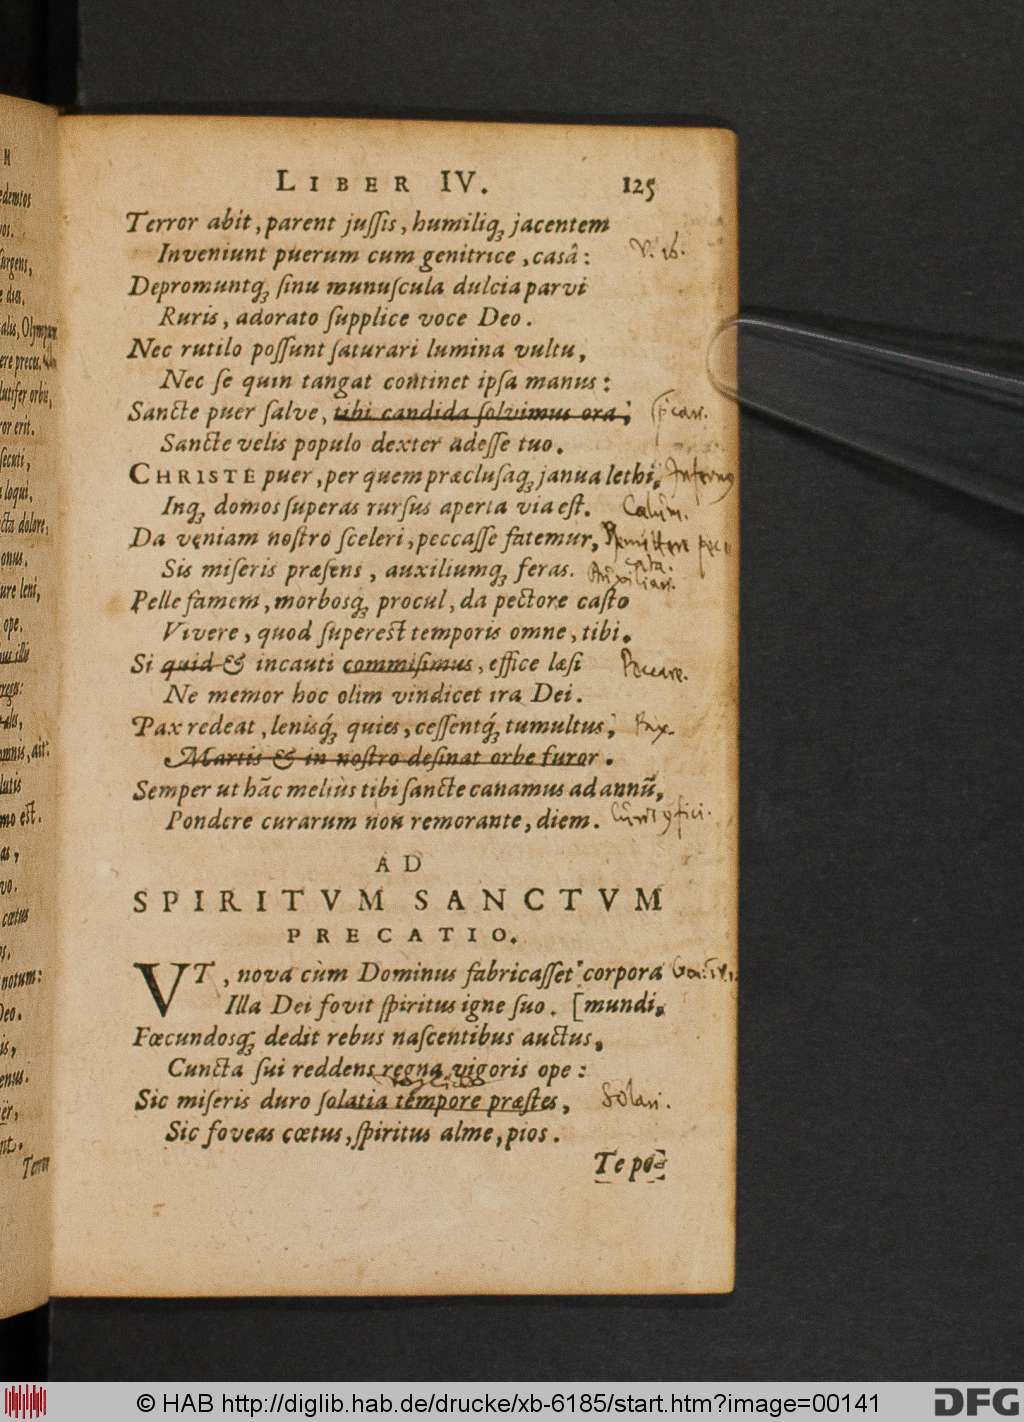 LIBER IV. 125
Terror abit, parent jussis, humiliq́ꝫ jacentem
Inveniunt puerum cum genitrice, casâ: V. 16.
Depromuntqꝫ sinu munuscula dulcia parvi
Ruris, adorato supplice voce Deo.
Nec rutilo possunt saturari lumina vultu,
Nec se quin tangat continet ipsa manus:
Sancte puer salve, tibi candida solvimus ora;
Sancte velis populo dexter adesse tuo.
CHRISTE puer, per quem præclusaqꝫ janua lethi, Infernus
Inqꝫ domos superas rursus aperta via est.
Da veniam nostro sceleri, peccasse fatemur, Remittere pecc
ata.
Sis miseris præsens, auxiliumqꝫ feras. Auxiliari.
Pelle famem, morbosqꝫ procul, da pectore casto
Vivere, quod superest temporis omne, tibi.
Si quid & incauti commisimus, effice læsi Peccare.
Ne memor hoc olim vindicet ira Dei.
Pax redeat, lenisq́ꝫ quies, cessentq́ꝫ tumultus; Pax.
Martis & in nostro desinat orbe furor.
Semper ut hãc meliùs tibi sancte canamus ad annũ,
Pondere curarum non remorante, diem.
AD
SPIRITVM SANCTVM
PRECATIO.
VT, nova cùm Dominus fabricasset corpora
Illa Dei fovit spiritus igne suo. [mundi,
Fœcundosqꝫ dedit rebus nascentibus auctus,
Cuncta sui reddens regna vigoris ope:
Sic miseris duro solatia tempore præstes, Solari.
Sic foveas cœtus, spiritus alme, pios.
Te po-
M
edemtos
surgens,
e dies,
alis, Olympum
ere preces,
lutifer orbis,
ror erit.
secuti,
a loqui,
cta dolore,
onus.
ure leni,
ope.
bus illis
greges:
ales,
omnis, ait:
lutis
mo est.
as,
vo.
cœtus
os.
notum:
Deo.
is,
enus.
ër,
nt.
Terror
© HAB http://diglib.hab.de/drucke/xb-6185/start.htm?image=00141
DFG